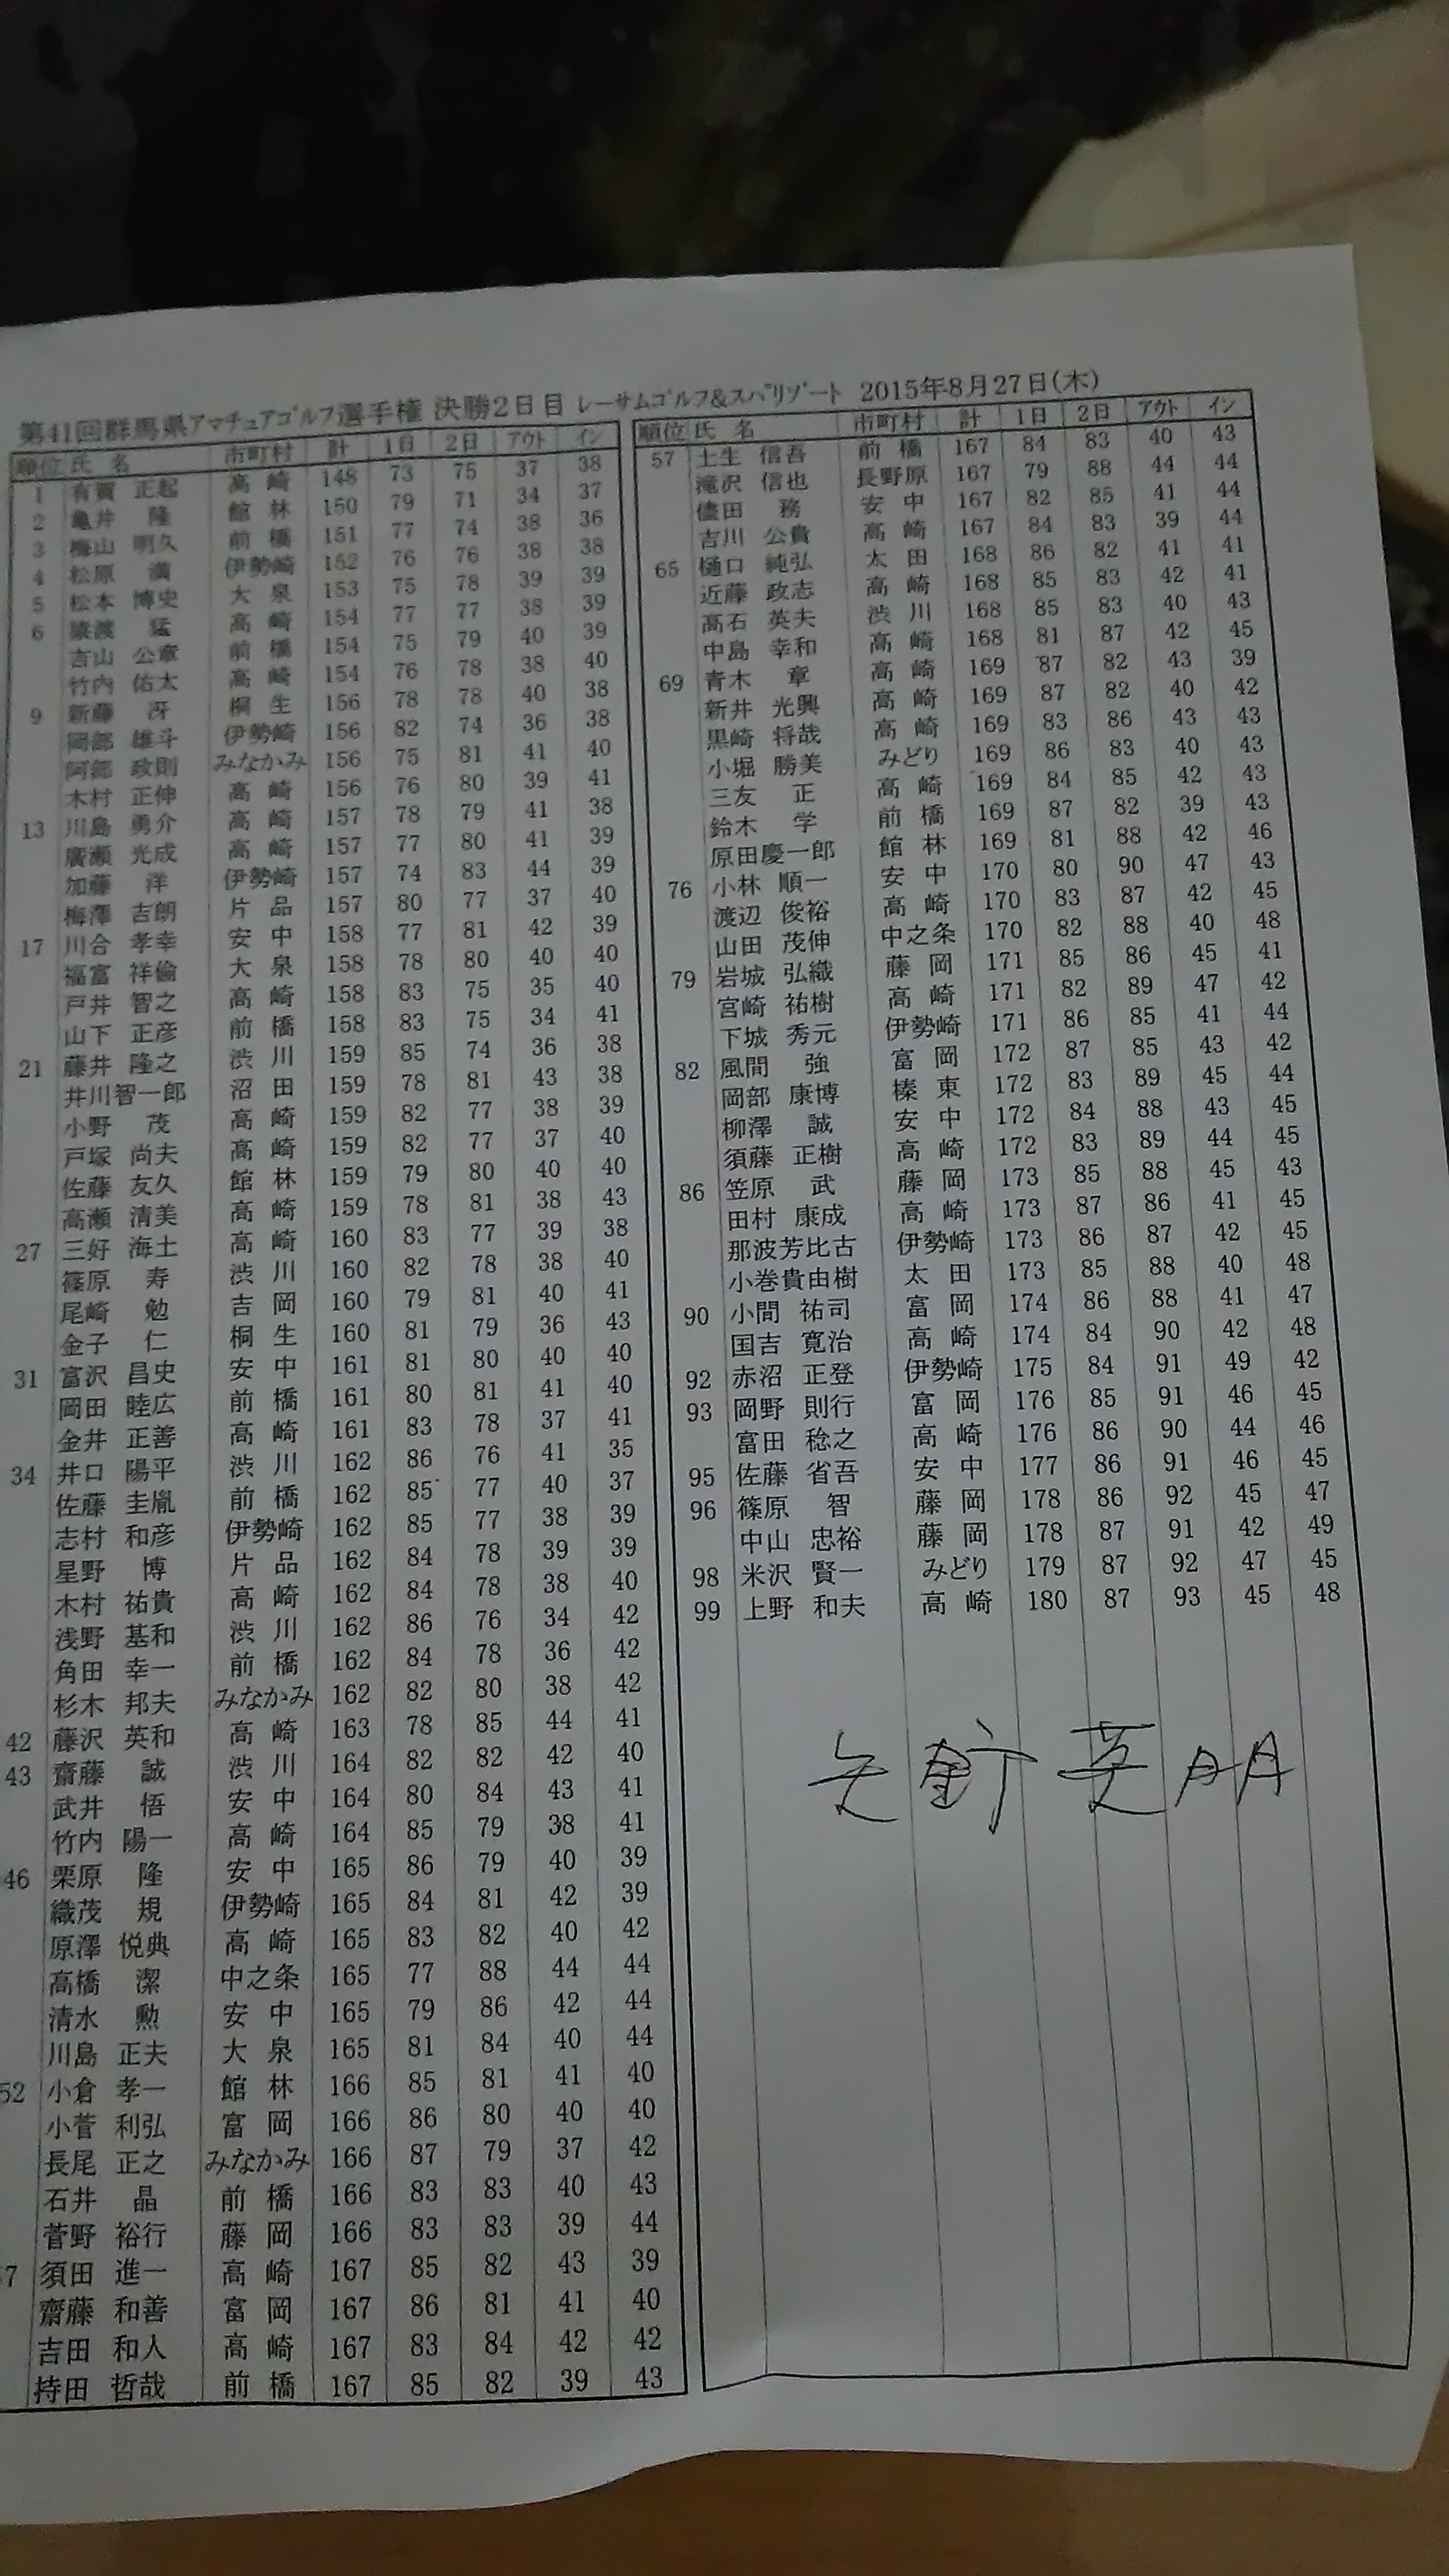 第41回群馬県アマチュアゴルフ選手権 決勝2日目 レーサムゴルフ&スパリゾート 2015年8月27日(木)
順位 氏 名 市町村 計 1日 2日 アウト イン
1 有賀 正起 高 崎 148 73 75 37 38
2 亀井 隆 館 林 150 79 71 34 37
3 梅山 明久 前 橋 151 77 74 38 36
4 松原 満 伊勢崎 152 76 76 38 38
5 松本 博史 大 泉 153 75 78 39 39
6 猛 高 崎 154 77 77 38 39
吉山 公章 前 橋 154 75 79 40 39
竹内 佑太 高 崎 154 76 78 38 40
9 新藤 冴 桐 生 156 78 78 40 38
岡部 雄斗 伊勢崎 156 82 74 36 38
阿部 政則 みなかみ 156 75 81 41 40
木村 正伸 高 崎 156 76 80 39 41
13 川島 勇介 高 崎 157 78 79 41 38
廣瀬 光成 高 崎 157 77 80 41 39
加藤 洋 伊勢崎 157 74 83 44 39
梅澤 吉朗 片 品 157 80 77 37 40
17 川合 孝幸 安 中 158 77 81 42 39
福富 祥倫 大 泉 158 78 80 40 40
戸井 智之 高 崎 158 83 75 35 40
山下 正彦 前 橋 158 83 75 34 41
21 藤井 隆之 渋 川 159 85 74 36 38
井川智一郎 沼 田 159 78 81 43 38
小野 茂 高 崎 159 82 77 38 39
戸塚 尚夫 高 崎 159 82 77 37 40
佐藤 友久 館 林 159 79 80 40 40
高瀬 清美 高 崎 159 78 81 38 43
27 三好 海士 高 崎 160 83 77 39 38
篠原 寿 渋 川 160 82 78 38 40
尾崎 勉 吉 岡 160 79 81 40 41
金子 仁 桐 生 160 81 79 36 43
31 富沢 昌史 安 中 161 81 80 40 40
岡田 睦広 前 橋 161 80 81 41 40
金井 正善 高 崎 161 83 78 37 41
34 井口 陽平 渋 川 162 86 76 41 35
佐藤 圭胤 前 橋 162 85 77 40 37
志村 和彦 伊勢崎 162 85 77 38 39
星野 博 片 品 162 84 78 39 39
木村 祐貴 高 崎 162 84 78 38 40
浅野 基和 渋 川 162 86 76 34 42
角田 幸一 前 橋 162 84 78 36 42
杉木 邦夫 みなかみ 162 82 80 38 42
42 藤沢 英和 高 崎 163 78 85 44 41
43 齋藤 誠 渋 川 164 82 82 42 40
武井 悟 安 中 164 80 84 43 41
竹内 陽一 高 崎 164 85 79 38 41
46 栗原 隆 安 中 165 86 79 40 39
織茂 規 伊勢崎 165 84 81 42 39
原澤 悦典 高 崎 165 83 82 40 42
高橋 潔 中之条 165 77 88 44 44
清水 勲 安 中 165 79 86 42 44
川島 正夫 大 泉 165 81 84 40 44
52 小倉 孝一 館 林 166 85 81 41 40
小菅 利弘 富 岡 166 86 80 40 40
長尾 正之 みなかみ 166 87 79 37 42
石井 晶 前 橋 166 83 83 40 43
菅野 裕行 藤 岡 166 83 83 39 44
57 須田 進一 高 崎 167 85 82 43 39
齋藤 和善 富 岡 167 86 81 41 40
吉田 和人 高 崎 167 83 84 42 42
持田 哲哉 前 橋 167 85 82 39 43
順位 氏 名 市町村 計 1日 2日 アウト イン
57 土生 信吾 前 橋 167 84 83 40 43
滝沢 信也 長野原 167 79 88 44 44
儘田 務 安 中 167 82 85 41 44
吉川 公貴 高 崎 167 84 83 39 44
65 樋口 純弘 太 田 168 86 82 41 41
近藤 政志 高 崎 168 85 83 42 41
高石 英夫 渋 川 168 85 83 40 43
中島 幸和 高 崎 168 81 87 42 45
69 青木 章 高 崎 169 87 82 43 39
新井 光興 高 崎 169 87 82 40 42
黒崎 将哉 高 崎 169 83 86 43 43
小堀 勝美 みどり 169 86 83 40 43
三友 正 高 崎 169 84 85 42 43
鈴木 学 前 橋 169 87 82 39 43
原田慶一郎 館 林 169 81 88 42 46
76 小林 順一 安 中 170 80 90 47 43
渡辺 俊裕 高 崎 170 83 87 42 45
山田 茂伸 中之条 170 82 88 40 48
79 岩城 弘織 藤 岡 171 85 86 45 41
宮崎 祐樹 高 崎 171 82 89 47 42
下城 秀元 伊勢崎 171 86 85 41 44
82 風間 強 富 岡 172 87 85 43 42
岡部 康博 榛 東 172 83 89 45 44
柳澤 誠 安 中 172 84 88 43 45
須藤 正樹 高 崎 172 83 89 44 45
86 笠原 武 藤 岡 173 85 88 45 43
田村 康成 高 崎 173 87 86 41 45
那波芳比古 伊勢崎 173 86 87 42 45
小巻貴由樹 太 田 173 85 88 40 48
90 小間 祐司 富 岡 174 86 88 41 47
国吉 寛治 高 崎 174 84 90 42 48
92 赤沼 正登 伊勢崎 175 84 91 49 42
93 岡野 則行 富 岡 176 85 91 46 45
富田 稔之 高 崎 176 86 90 44 46
95 佐藤 省吾 安 中 177 86 91 46 45
96 篠原 智 藤 岡 178 86 92 45 47
中山 忠裕 藤 岡 178 87 91 42 49
98 米沢 賢一 みどり 179 87 92 47 45
99 上野 和夫 高 崎 180 87 93 45 48
矢野 英明